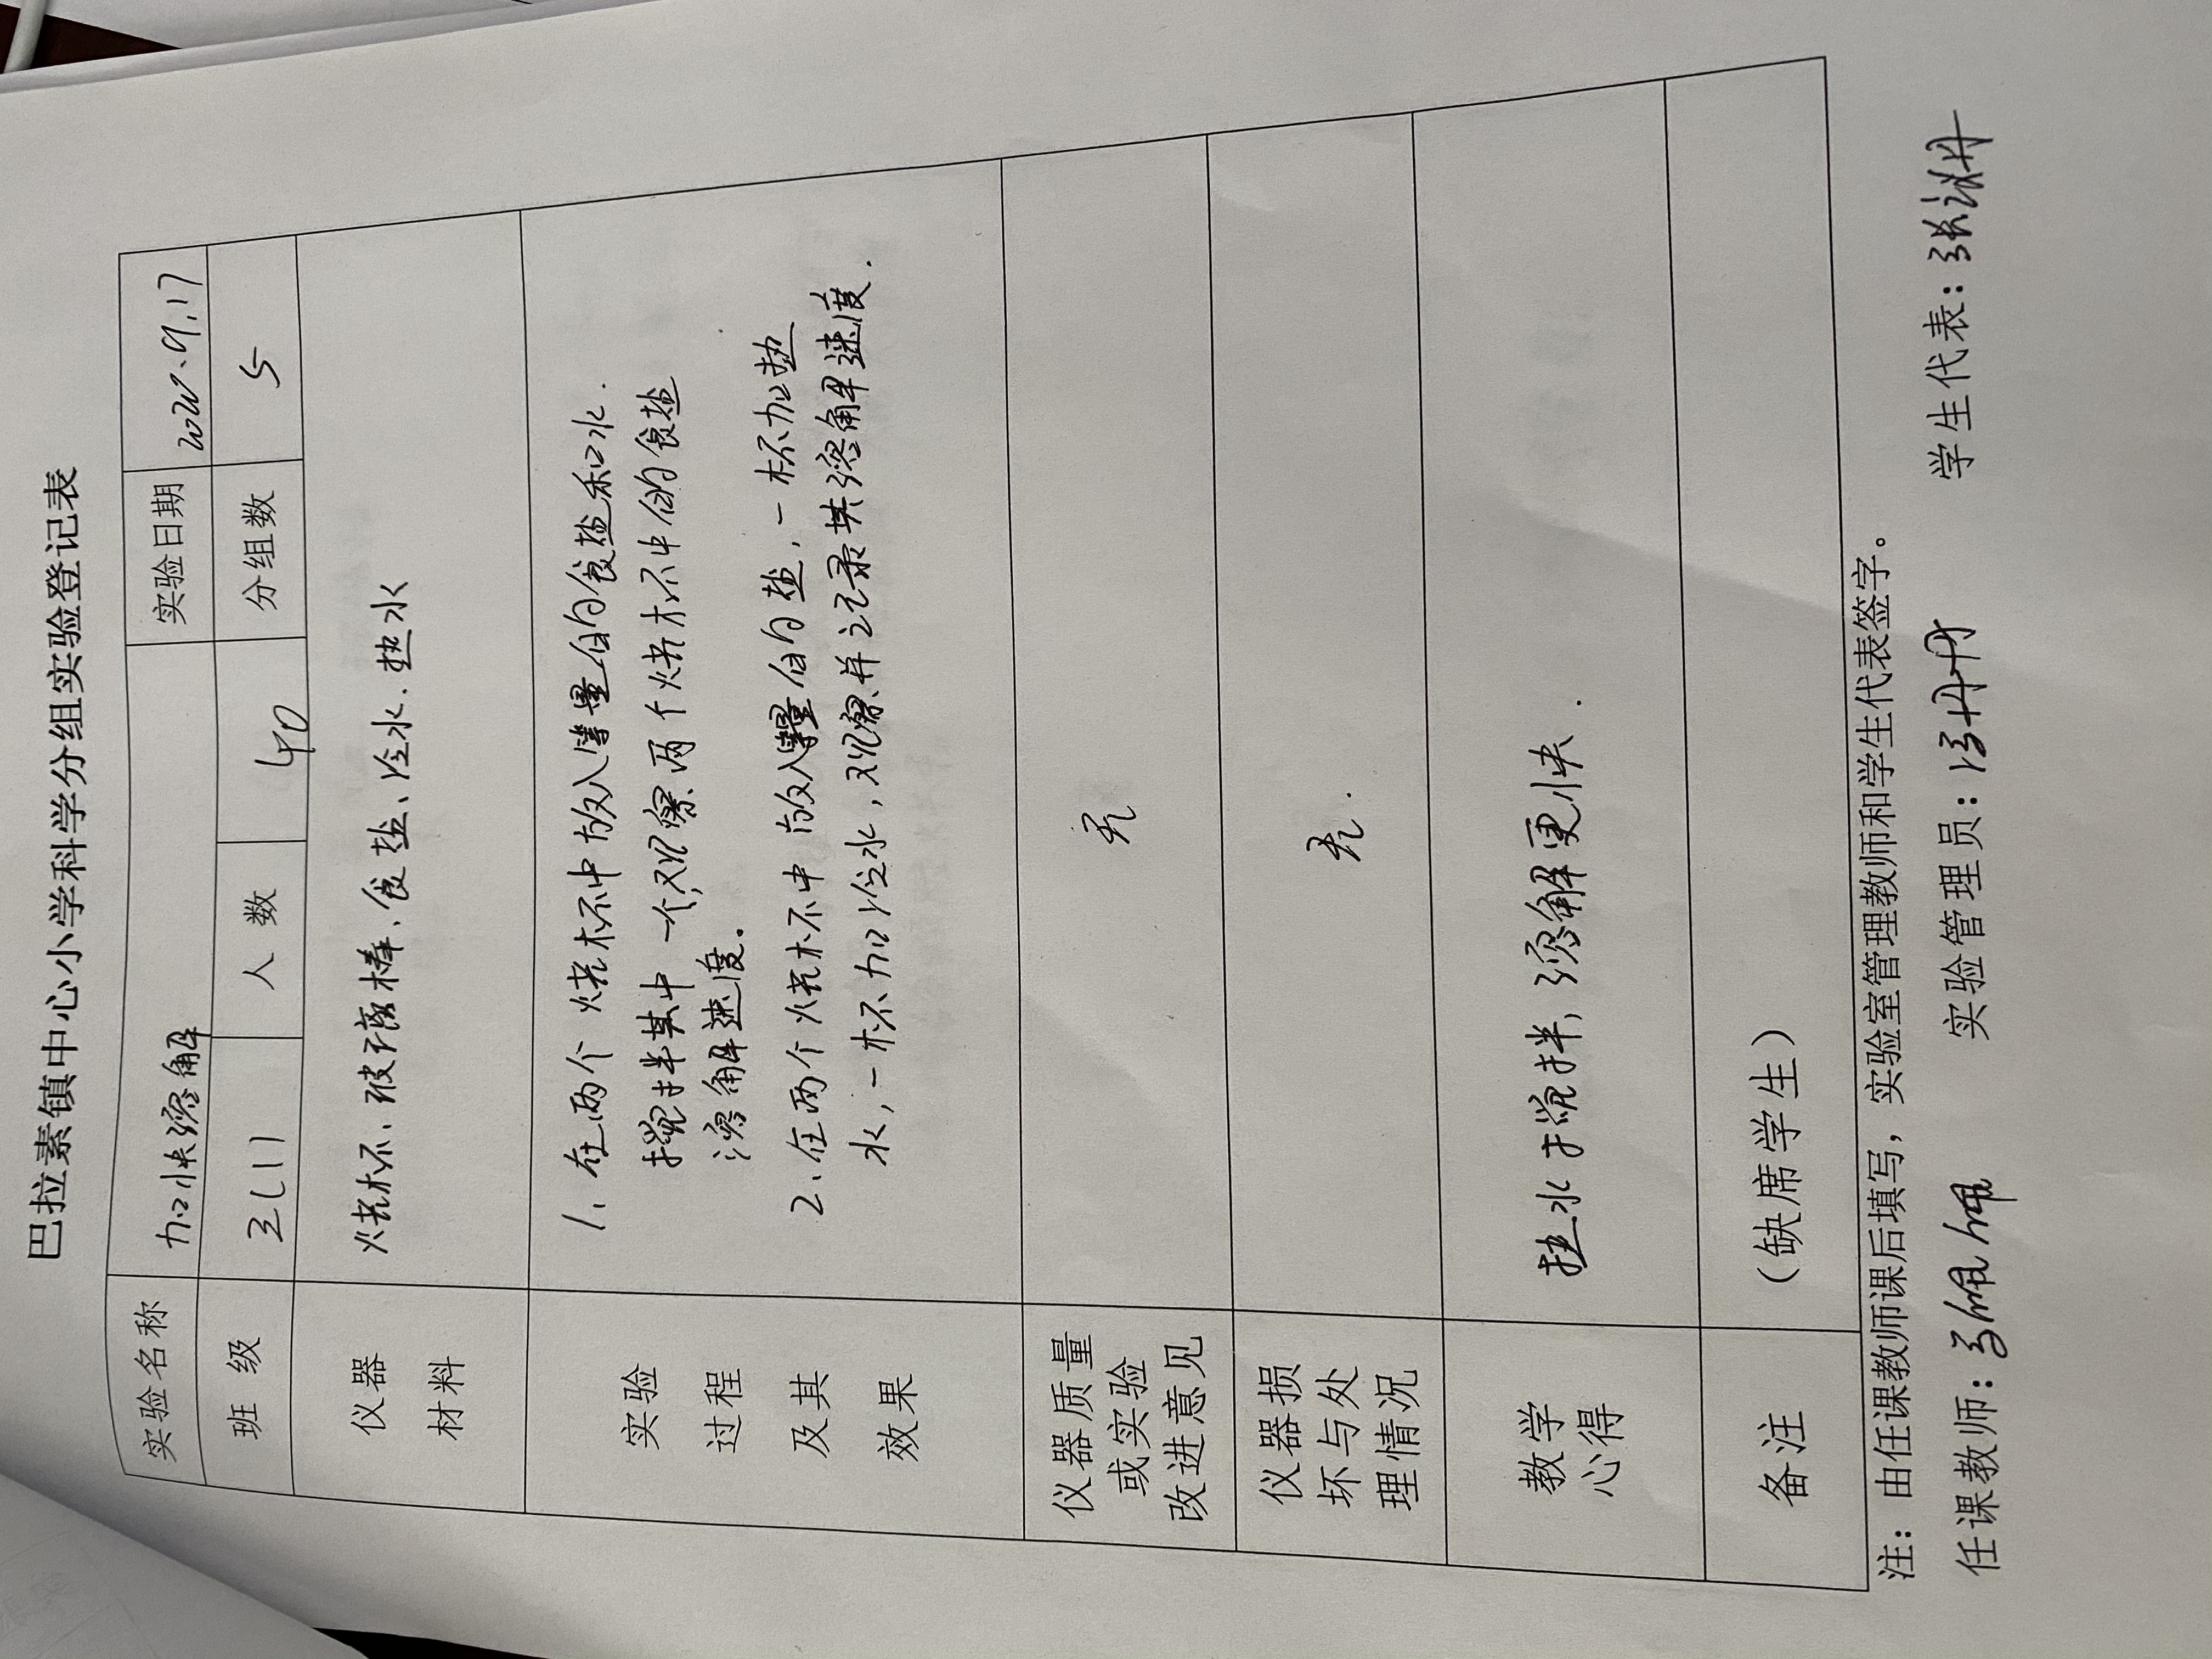 巴拉素镇中心小学科学分组实验登记表
实验名称 加快溶解 实验日期
班级 三(1) 人数 40 分组数 5
仪器 烧杯、玻璃棒、食盐、冷水、热水
材料
实验 1、在两个烧杯中放入等量的食盐和水.
过程 搅拌其中一个,观察两个烧杯中的食盐
及其 溶解速度。
效果 2、在两个烧杯中放入等量的盐,一杯加热
水,一杯加冷水,观察并记录其溶解速度.
仪器质量
或实验 无
改进意见
仪器损
坏与处 无.
理情况
教学 热水搅拌,溶解更快.
心得
备注 (缺席学生)
注:由任课教师课后填写,实验室管理教师和学生代表签字。
任课教师: 实验管理员:冯丹丹 学生代表: